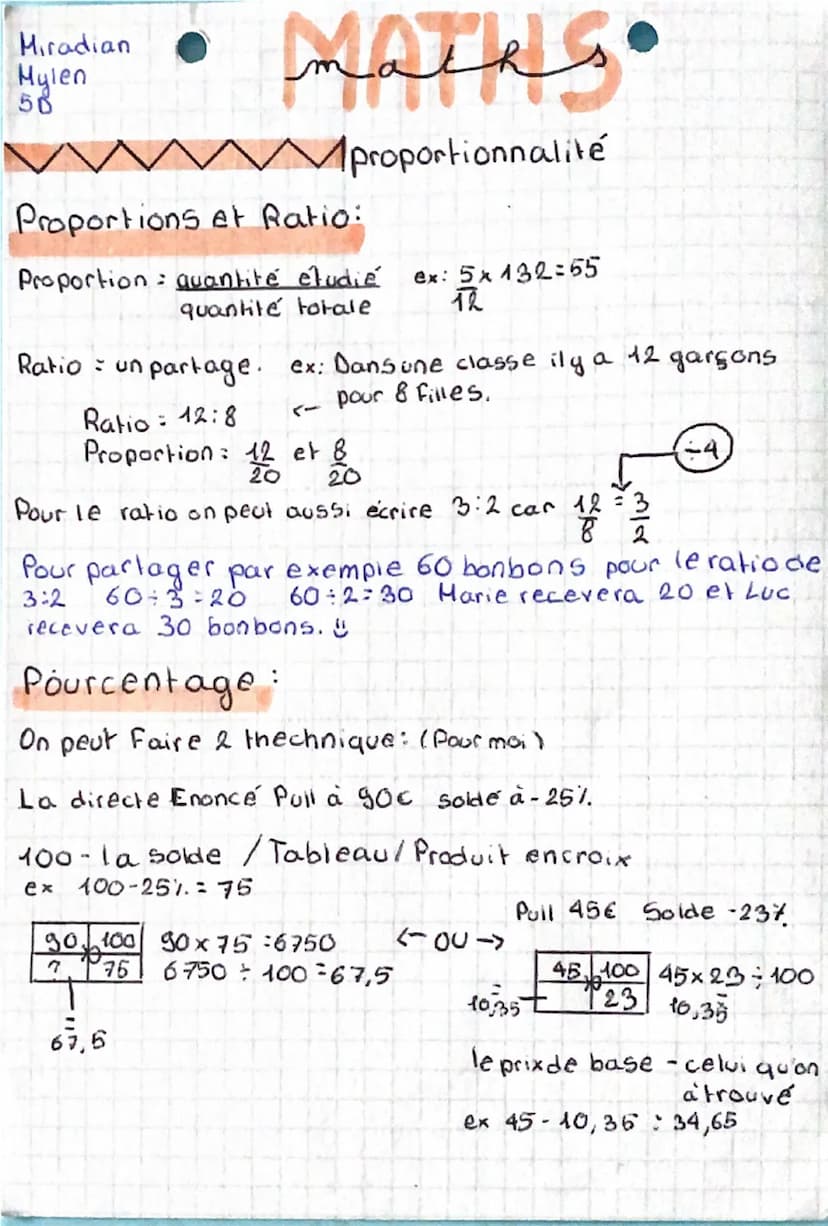 Miradian
Mylen
5D
MATHS
maths
proportionnalité
Proportions et Ratio:
Proportion = quantité étudié ex: 5 x 132 = 55
quantité totale 12
Ratio = un partage. ex: Dans une classe il y a 12 garçons
pour 8 filles.
Ratio = 12:8 <-
Proportion = 12 et 8
20 20
÷4
Pour le ratio on peut aussi écrire 3:2 car 12 = 3
8 2
Pour partager par exemple 60 bonbons pour le ratio de
3:2 60÷3=20 60÷2=30 Marie recevera 20 et Luc
recevera 30 bonbons.
Pourcentage :
On peut Faire 2 thechnique: (Pour moi)
La directe Enoncé Pull à 90€ soldé à -25%.
100 - la solde / Tableau / Produit en croix
ex 100-25% = 75
Pull 45€ Solde -23%
90 100 90 x 75 = 6750 <- OU ->
? 75 6750 ÷ 100 = 67,5
= 67,5
45 100 45 x 23 ÷ 100
10,35 = 23 = 10,35
le prix de base - celui qu'on
a trouvé
ex 45 - 10,35 = 34,65